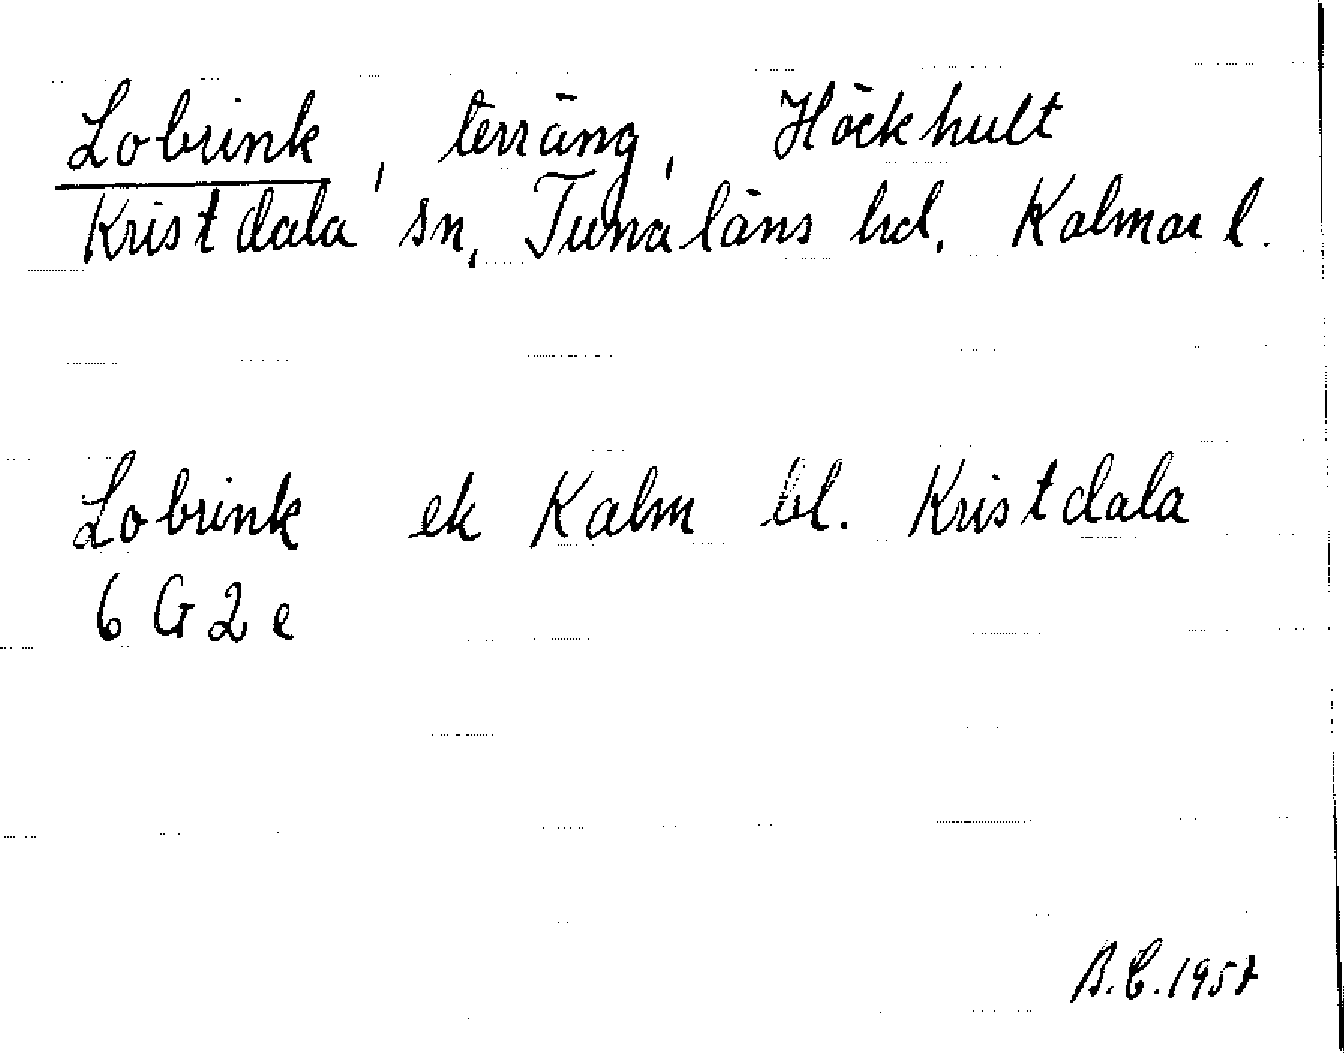 Lobrink, terräng, Höckhult
Kristdala sn, Tunaläns hd. Kalmar l.
Lobrink ek Kalm bl. Kristdala
6 G 2 e